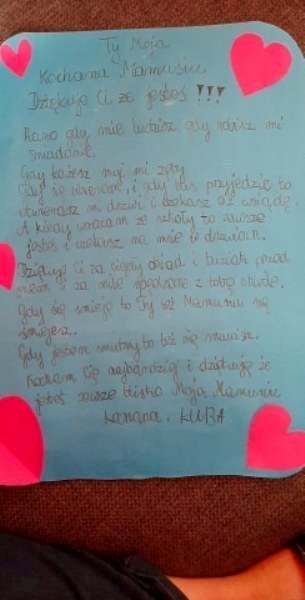 Ty Moja
Kochana Mamusiu
Dziękuję Ci że jesteś !!!
Rano gdy mnie budzisz, gdy robisz mi
śniadanie.
Gdy każesz myć mi zęby
Gdy się ubieram, i gdy bus przyjedzie to
otwierasz mi drzwi i czekasz aż wsiądę.
A kiedy wracam ze szkoły to zawsze
jesteś i czekasz na mnie w drzwiach.
Dziękuję Ci za ciepły obiad i buziak przed
snem i za miłe spędzone z tobą chwile.
Gdy się śmieję to Ty też Mamusiu się
śmiejesz.
Gdy jestem smutny to też się smucisz.
Kocham Cię najbardziej i dziękuję że
jesteś zawsze blisko Moja Mamusiu
kochana. KUBA